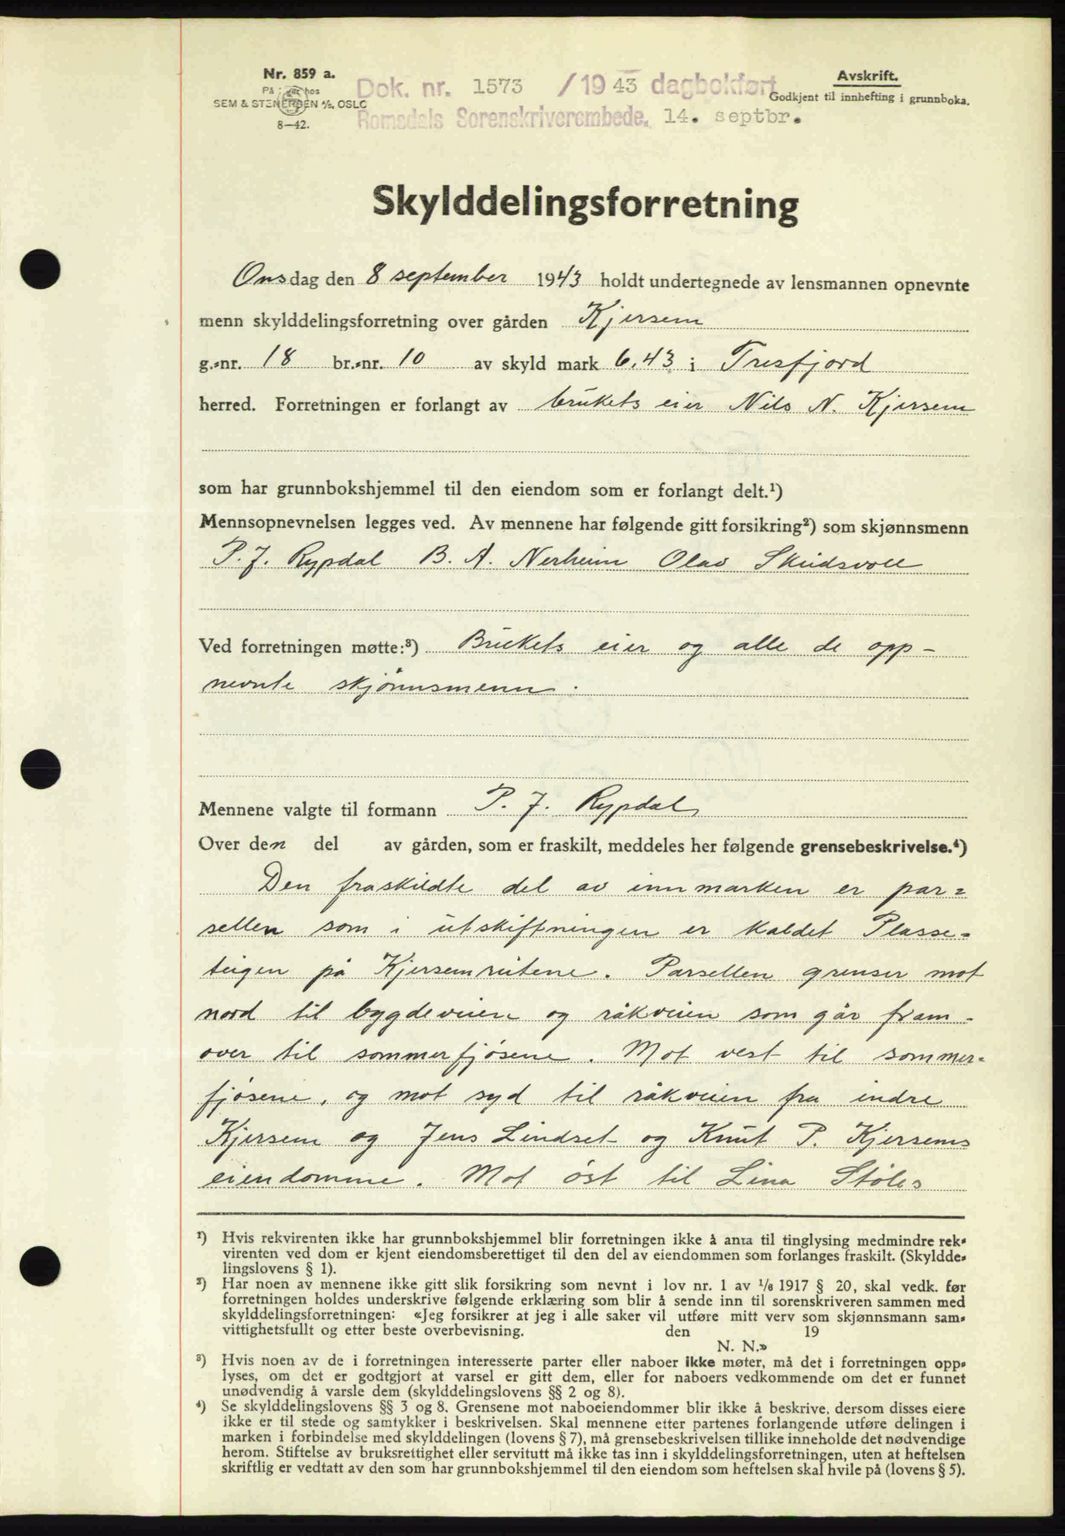 Nr. 859 a.
På hos
SEM & STENERSEN A/S, OSLO
8-42.
Dok. nr. 1573 /1943 dagbokført
Romsdals Sorenskriverembede. 14. septbr.
Avskrift.
Godkjent til innhefting i grunnboka.
Skylddelingsforretning
Onsdag den 8 september 1943 holdt undertegnede av lensmannen opnevnte
menn skylddelingsforretning over gården Kjersem
g.-nr. 18 br.-nr. 10 av skyld mark 6,43 i Tresfjord
herred. Forretningen er forlangt av brukets eier Nils N. Kjersem
som har grunnbokshjemmel til den eiendom som er forlangt delt.¹)
Mennsopnevnelsen legges ved. Av mennene har følgende gitt forsikring²) som skjønnsmenn
P. J. Rypdal B. A. Nerheim Olav Skudsvoll
Ved forretningen møtte:³) Brukets eier og alle de opp-
nevnte skjønnsmenn.
Mennene valgte til formann P. J. Rypdal
Over den del av gården, som er fraskilt, meddeles her følgende grensebeskrivelse.⁴)
Den fraskildte del av innmarken er par=
sellen som i utskiftningen er kaldet Plasse-
teigen på Kjersemrutene. Parsellen grenser mot
nord til bygdeveien og råkveien som går fram-
over til sommerfjøsene. Mot vest til sommer-
fjøsene, og mot syd til råkveien fra indre
Kjersem og Jens Lindset og Knut P. Kjersems
eiendomme. Mot øst til Lina Støles
¹) Hvis rekvirenten ikke har grunnbokshjemmel blir forretningen ikke å anta til tinglysing medmindre rek-
virenten ved dom er kjent eiendomsberettiget til den del av eiendommen som forlanges fraskilt. (Skyldde-
lingslovens § 1).
²) Har noen av mennene ikke gitt slik forsikring som nevnt i lov nr. 1 av 1/6 1917 § 20, skal vedk. før
forretningen holdes underskrive følgende erklæring som blir å sende inn til sorenskriveren sammen med
skylddelingsforretningen: «Jeg forsikrer at jeg i alle saker vil utføre mitt verv som skjønnsmann sam-
vittighetsfullt og etter beste overbevisning. den 19
N. N.»
³) Hvis noen av de i forretningen interesserte parter eller naboer ikke møter, må det i forretningen opp-
lyses, om det er godtgjort at varsel er gitt dem, eller for naboers vedkommende om det er funnet
unødvendig å varsle dem (skylddelingslovens §§ 2 og 8).
⁴) Se skylddelingslovens §§ 3 og 8. Grensene mot naboeiendommer blir ikke å beskrive, dersom disses eiere
ikke er til stede og samtykker i beskrivelsen. Skal mennene etter partenes forlangende utføre delingen i
marken i forbindelse med skylddelingen (lovens § 7), må grensebeskrivelsen tillike inneholde det nødvendige
herom. Stiftelse av bruksrettighet eller servitutt må ikke tas inn i skylddelingsforretningen, uten at heftelsen
skriftlig er vedtatt av den som har grunnbokshjemmel til den eiendom som heftelsen skal hvile på (lovens § 5).